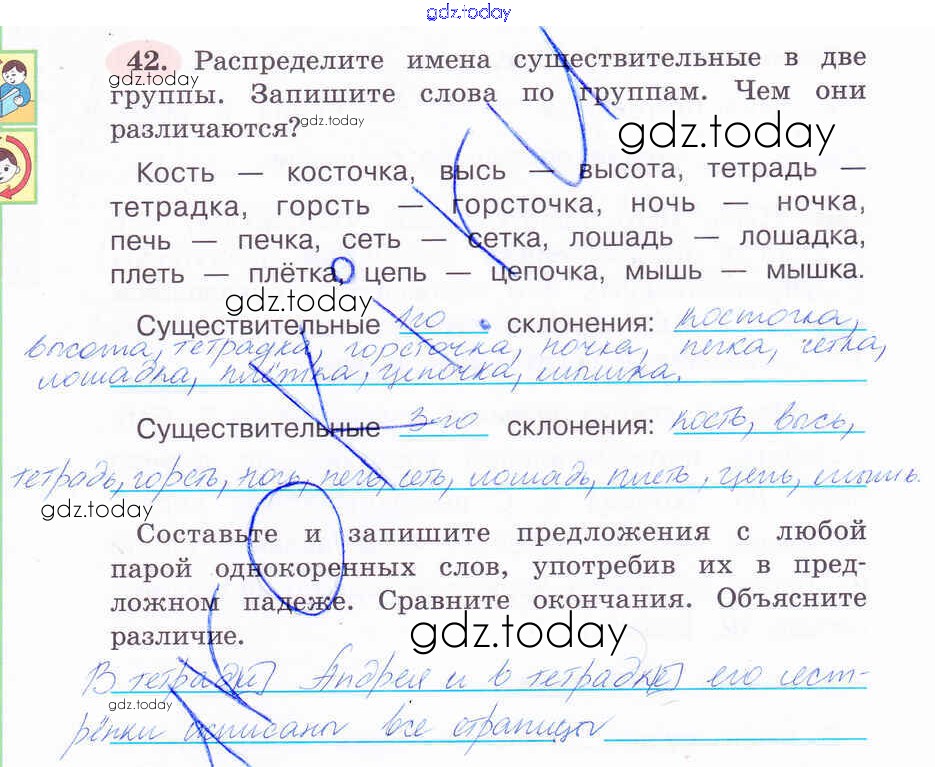 gdz.today
42. Распределите имена существительные в две
gdz.today
группы. Запишите слова по группам. Чем они
различаются?
gdz.today
gdz.today
Кость — косточка, высь — высота, тетрадь —
тетрадка, горсть — горсточка, ночь — ночка,
печь — печка, сеть — сетка, лошадь — лошадка,
плеть — плётка, цепь — цепочка, мышь — мышка.
gdz.today
Существительные 1-го склонения: косточка,
высота, тетрадка, горсточка, ночка, печка, сетка,
лошадка, плётка, цепочка, мышка.
Существительные 3-го склонения: кость, высь,
тетрадь, горсть, ночь, печь, сеть, лошадь, плеть, цепь, мышь.
gdz.today
Составьте и запишите предложения с любой
парой однокоренных слов, употребив их в пред-
ложном падеже. Сравните окончания. Объясните
различие.
gdz.today
В тетради Андрея и в тетрадке его сест-
рёнки исписаны все страницы